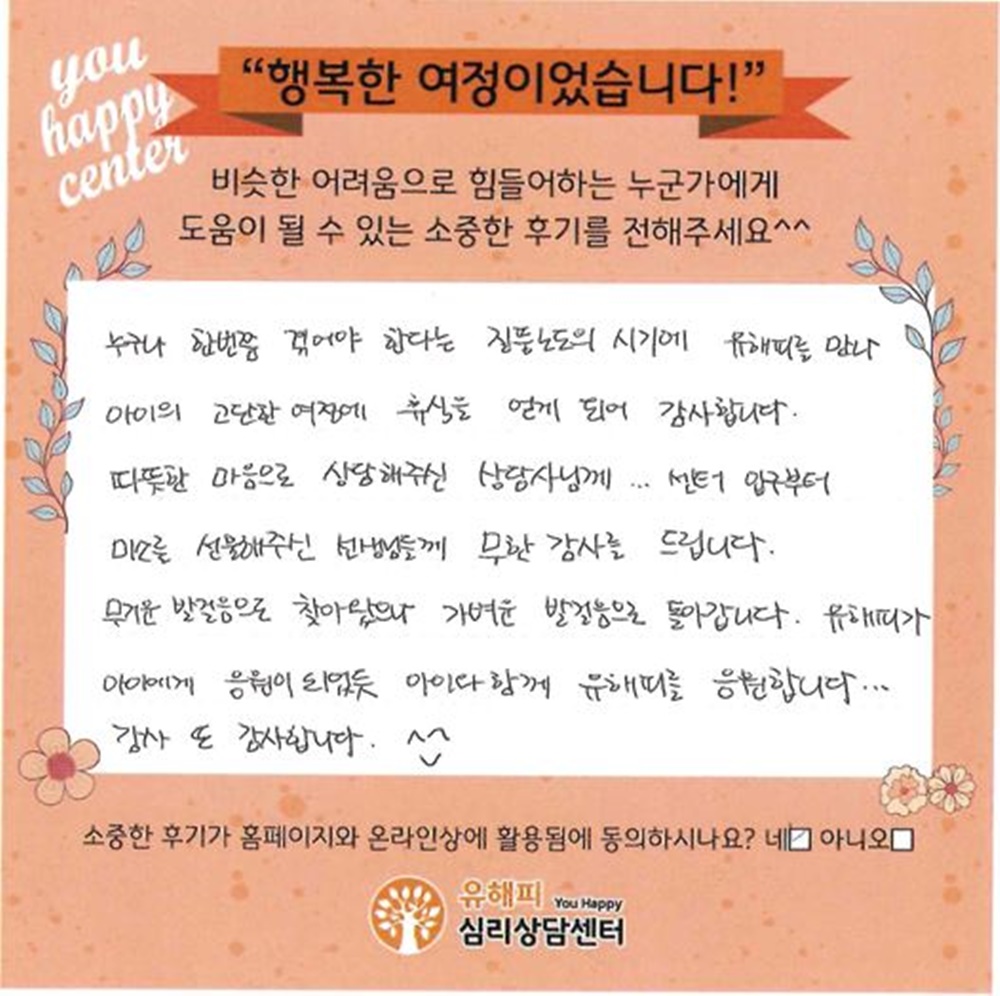 you
happy
center
“행복한 여정이었습니다!”
비슷한 어려움으로 힘들어하는 누군가에게
도움이 될 수 있는 소중한 후기를 전해주세요^^
누구나 한번쯤 겪어야 한다는 질풍노도의 시기에 유해피를 만나
아이의 고단한 여정에 휴식을 얻게 되어 감사합니다.
따뜻한 마음으로 상담해주신 상담사님께 ... 센터 입구부터
미소를 선물해주신 선생님들께 무한 감사를 드립니다.
무거운 발걸음으로 찾아왔으나 가벼운 발걸음으로 돌아갑니다. 유해피가
아이에게 응원이 되었듯 아이와 함께 유해피를 응원합니다...
감사 또 감사합니다. ^^
소중한 후기가 홈페이지와 온라인상에 활용됨에 동의하시나요? 네☑ 아니오☐
유해피 You Happy
심리상담센터